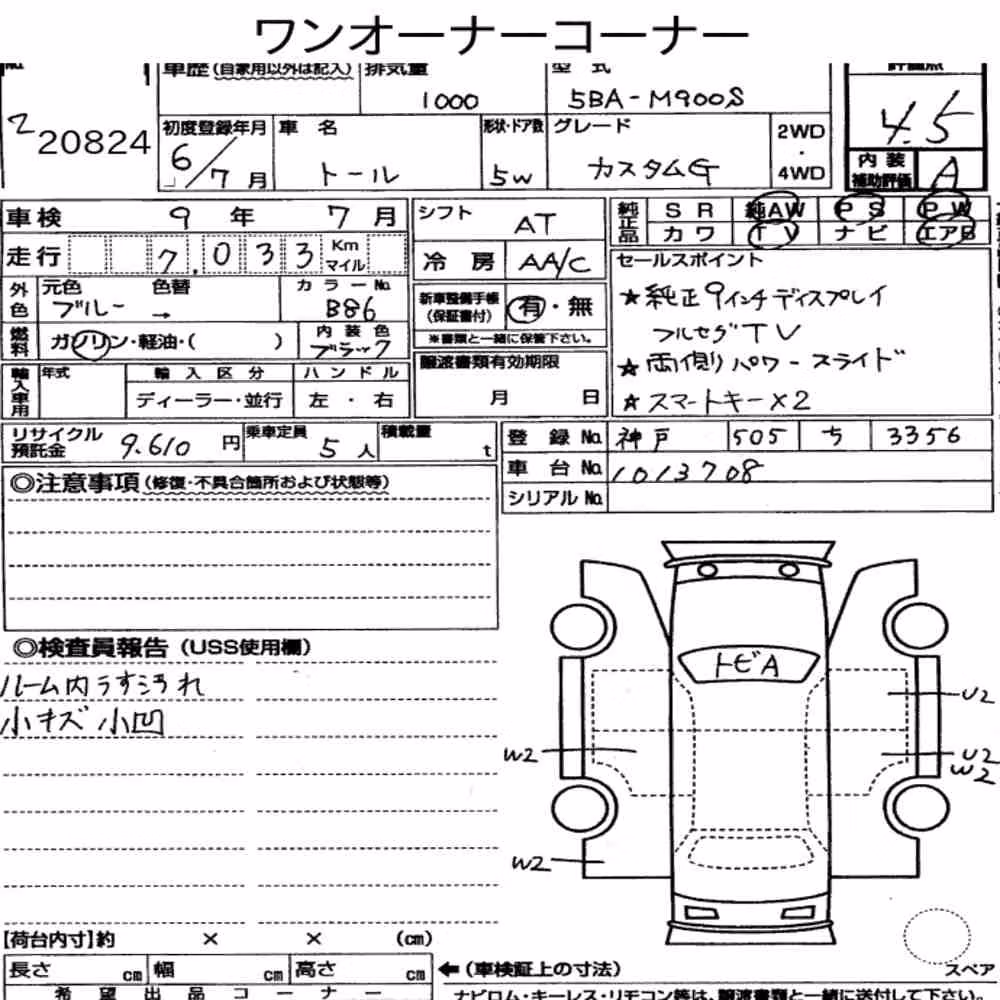 ワンオーナーコーナー
車歴(自家用以外は記入) 排気量 型式 評価点
1000 5BA-M900S 4.5
2 20824
初度登録年月 車名 形状・ドア数 グレード 2WD・4WD
6/7月 トール 5W カスタムG
内装補助評価 A
車検 9年 7月
シフト AT
純正品 SR 純AW PS PW
カワ TV ナビ エアB
走行 7,033 Km マイル
冷房 AA/C
セールスポイント
外色 元色 色替 カラーNo.
ブルー → B86
新車整備手帳(保証書付) 有・無
※書類と一緒に保管下さい。
★純正9インチディスプレイ
フルセグTV
燃料 ガソリン・軽油・( ) 内装色
ブラック
譲渡書類有効期限
月 日
★両側パワースライド
★スマートキー×2
輸入車用 年式 輸入区分 ハンドル
ディーラー・並行 左・右
リサイクル預託金 9,610円 乗車定員 5人 積載量 t
登録No. 神戸 505 ち 3356
車台No. 1013708
シリアルNo.
◎注意事項(修復・不具合箇所および状態等)
◎検査員報告(USS使用欄)
ルーム内うす汚れ
小キズ 小凹
トビA
U2
W2
U2
W2
W2
【荷台内寸】約 × × (cm)
長さ cm 幅 cm 高さ cm
←(車検証上の寸法)
スペア
希望出品コーナー
ナビロム・キーレス・リモコン等は、譲渡書類と一緒に送付して下さい。